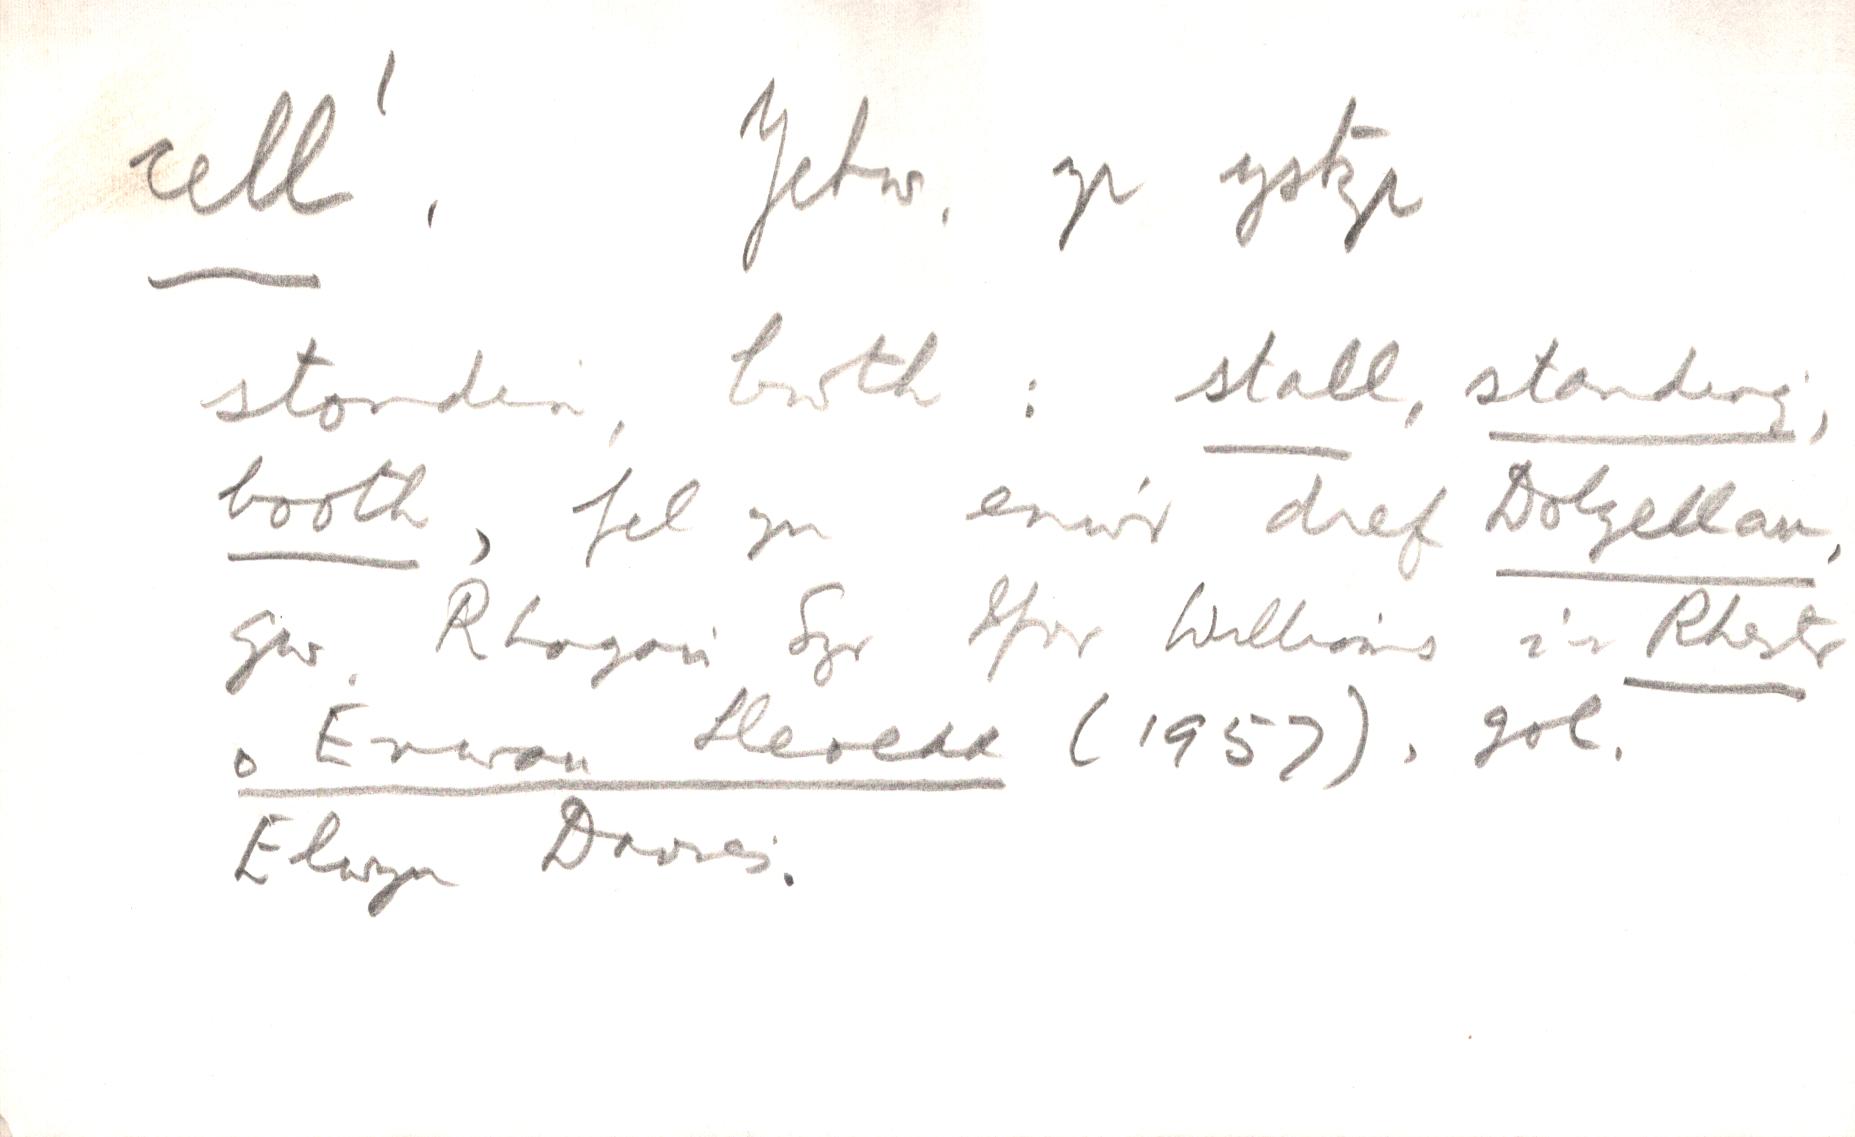 cell¹. Ychw. yr ystyr
stondin, bwth : stall, standing,
booth, fel yn enw'r dref Dolgellau,
gw. Rhagair Syr Ifor Williams i'r Rhestr
o Enwau Lleoedd (1957), gol.
Elwyn Davies.